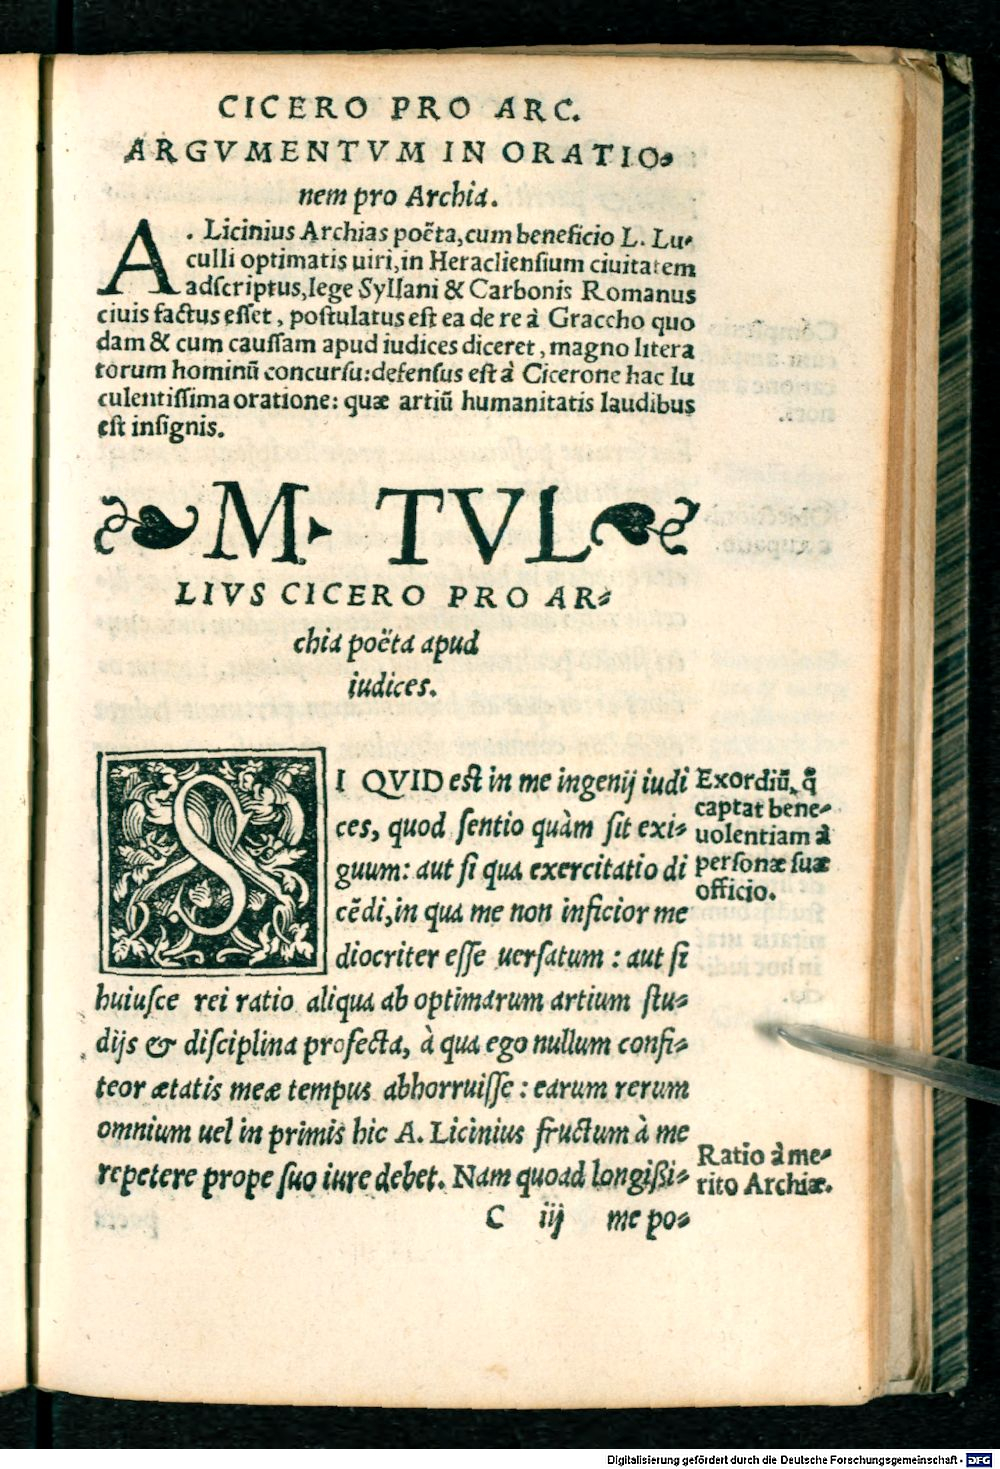 CICERO PRO ARC.
ARGVMENTVM IN ORATIO⸗
nem pro Archia.
A. Licinius Archias poẽta, cum beneficio L. Lu⸗
culli optimatis uiri, in Heracliensium ciuitatem
adſcriptus, lege Syllani & Carbonis Romanus
ciuis factus eſſet, poſtulatus eſt ea de re à Graccho quo
dam & cum cauſſam apud iudices diceret, magno litera
torum hominũ concurſu: defenſus eſt à Cicerone hac lu
culentiſſima oratione: quæ artiũ humanitatis laudibus
eſt inſignis.
M. TVL
LIVS CICERO PRO AR⸗
chia poëta apud
iudices.
SI QVID est in me ingenij iudi
ces, quod ſentio quàm ſit exi⸗
guum: aut ſi qua exercitatio di
cẽdi, in qua me non inficior me
diocriter eſſe uerſatum: aut ſi
huiuſce rei ratio aliqua ab optimarum artium ſtu⸗
dijs & diſciplina profecta, à qua ego nullum confi⸗
teor ætatis meæ tempus abhorruiſſe: earum rerum
omnium uel in primis hic A. Licinius fructum à me
repetere prope ſuo iure debet. Nam quoad longißi⸗
C iij me po⸗
Exordiũ, q̃
captat bene⸗
uolentiam à
perſonæ ſuæ
officio.
Ratio à me⸗
rito Archiæ.
Digitalisierung gefördert durch die Deutsche Forschungsgemeinschaft - DFG